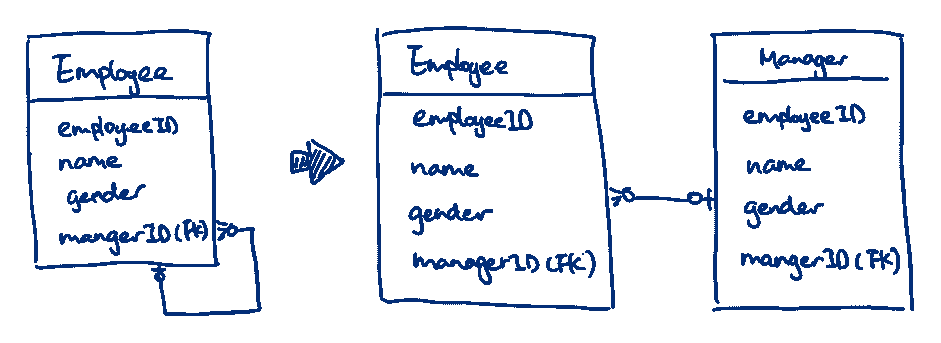 Employee
employeeID
name
gender
mangerID (FK)
Employee
employeeID
name
gender
managerID (FK)
Manager
employeeID
name
gender
mangerID (FK)